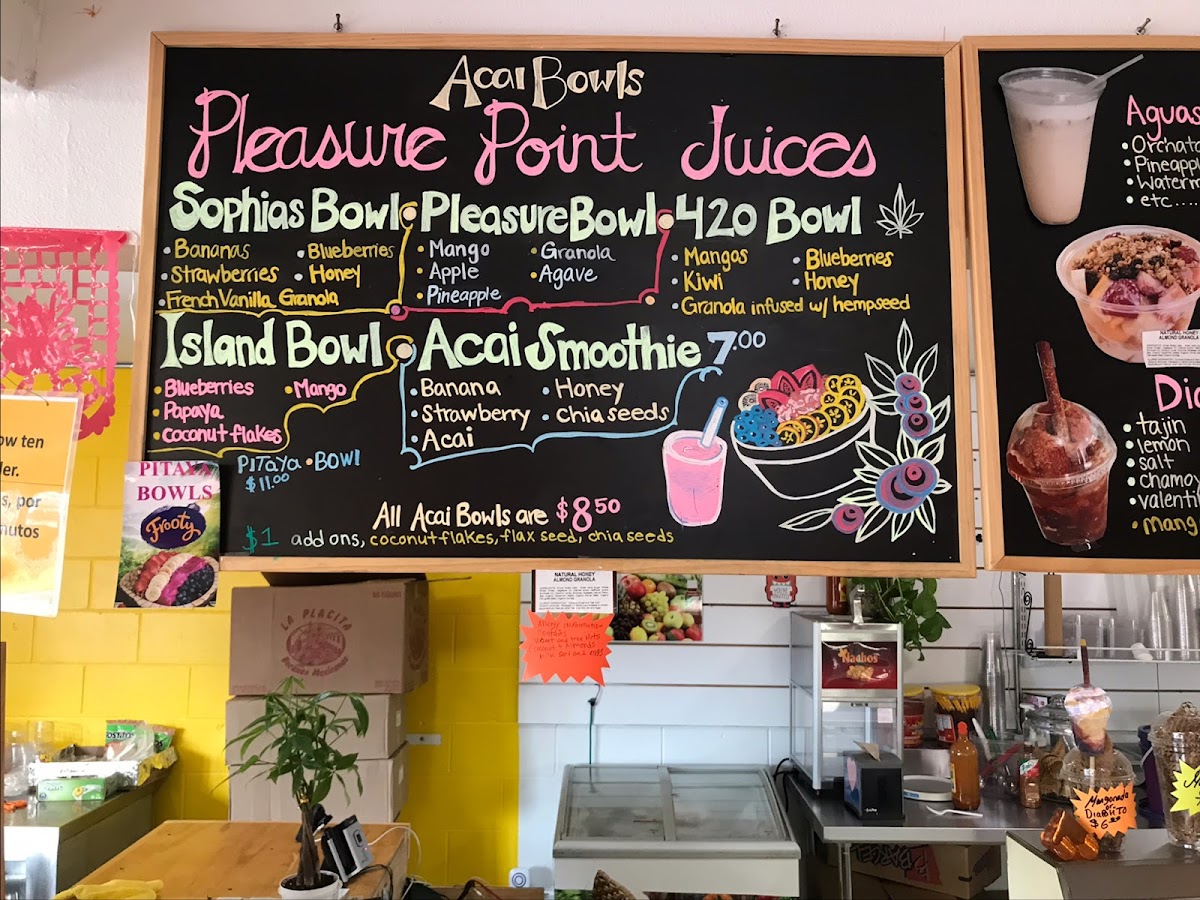 Acai Bowls
Pleasure Point Juices
Sophias Bowl
• Bananas • Blueberries
• Strawberries • Honey
• French Vanilla Granola
Pleasure Bowl
• Mango • Granola
• Apple • Agave
• Pineapple
420 Bowl
• Mangos • Blueberries
• Kiwi • Honey
• Granola infused w/ hempseed
Island Bowl
• Blueberries • Mango
• Papaya
• coconut flakes
Acai Smoothie 7.00
• Banana • Honey
• Strawberry • chia seeds
• Acai
PITAYA • BOWL
$11.00
All Acai Bowls are $8.50
$1 add ons, coconut flakes, flax seed, chia seeds
Aguas
• Orchata
• Pineappl
• Waterm
• etc....
NATURAL HONEY
ALMOND GRANOLA
Dia
• tajin
• lemon
• salt
• chamoy
• valenti
• mang
ow ten
der.
s, por
nutos
PITAYA
BOWLS
Frooty
LA PLACITA
NATURAL HONEY
ALMOND GRANOLA
Allergy information
Nachos
TOSTITOS
Mangonada
or
Diablito
$6.00